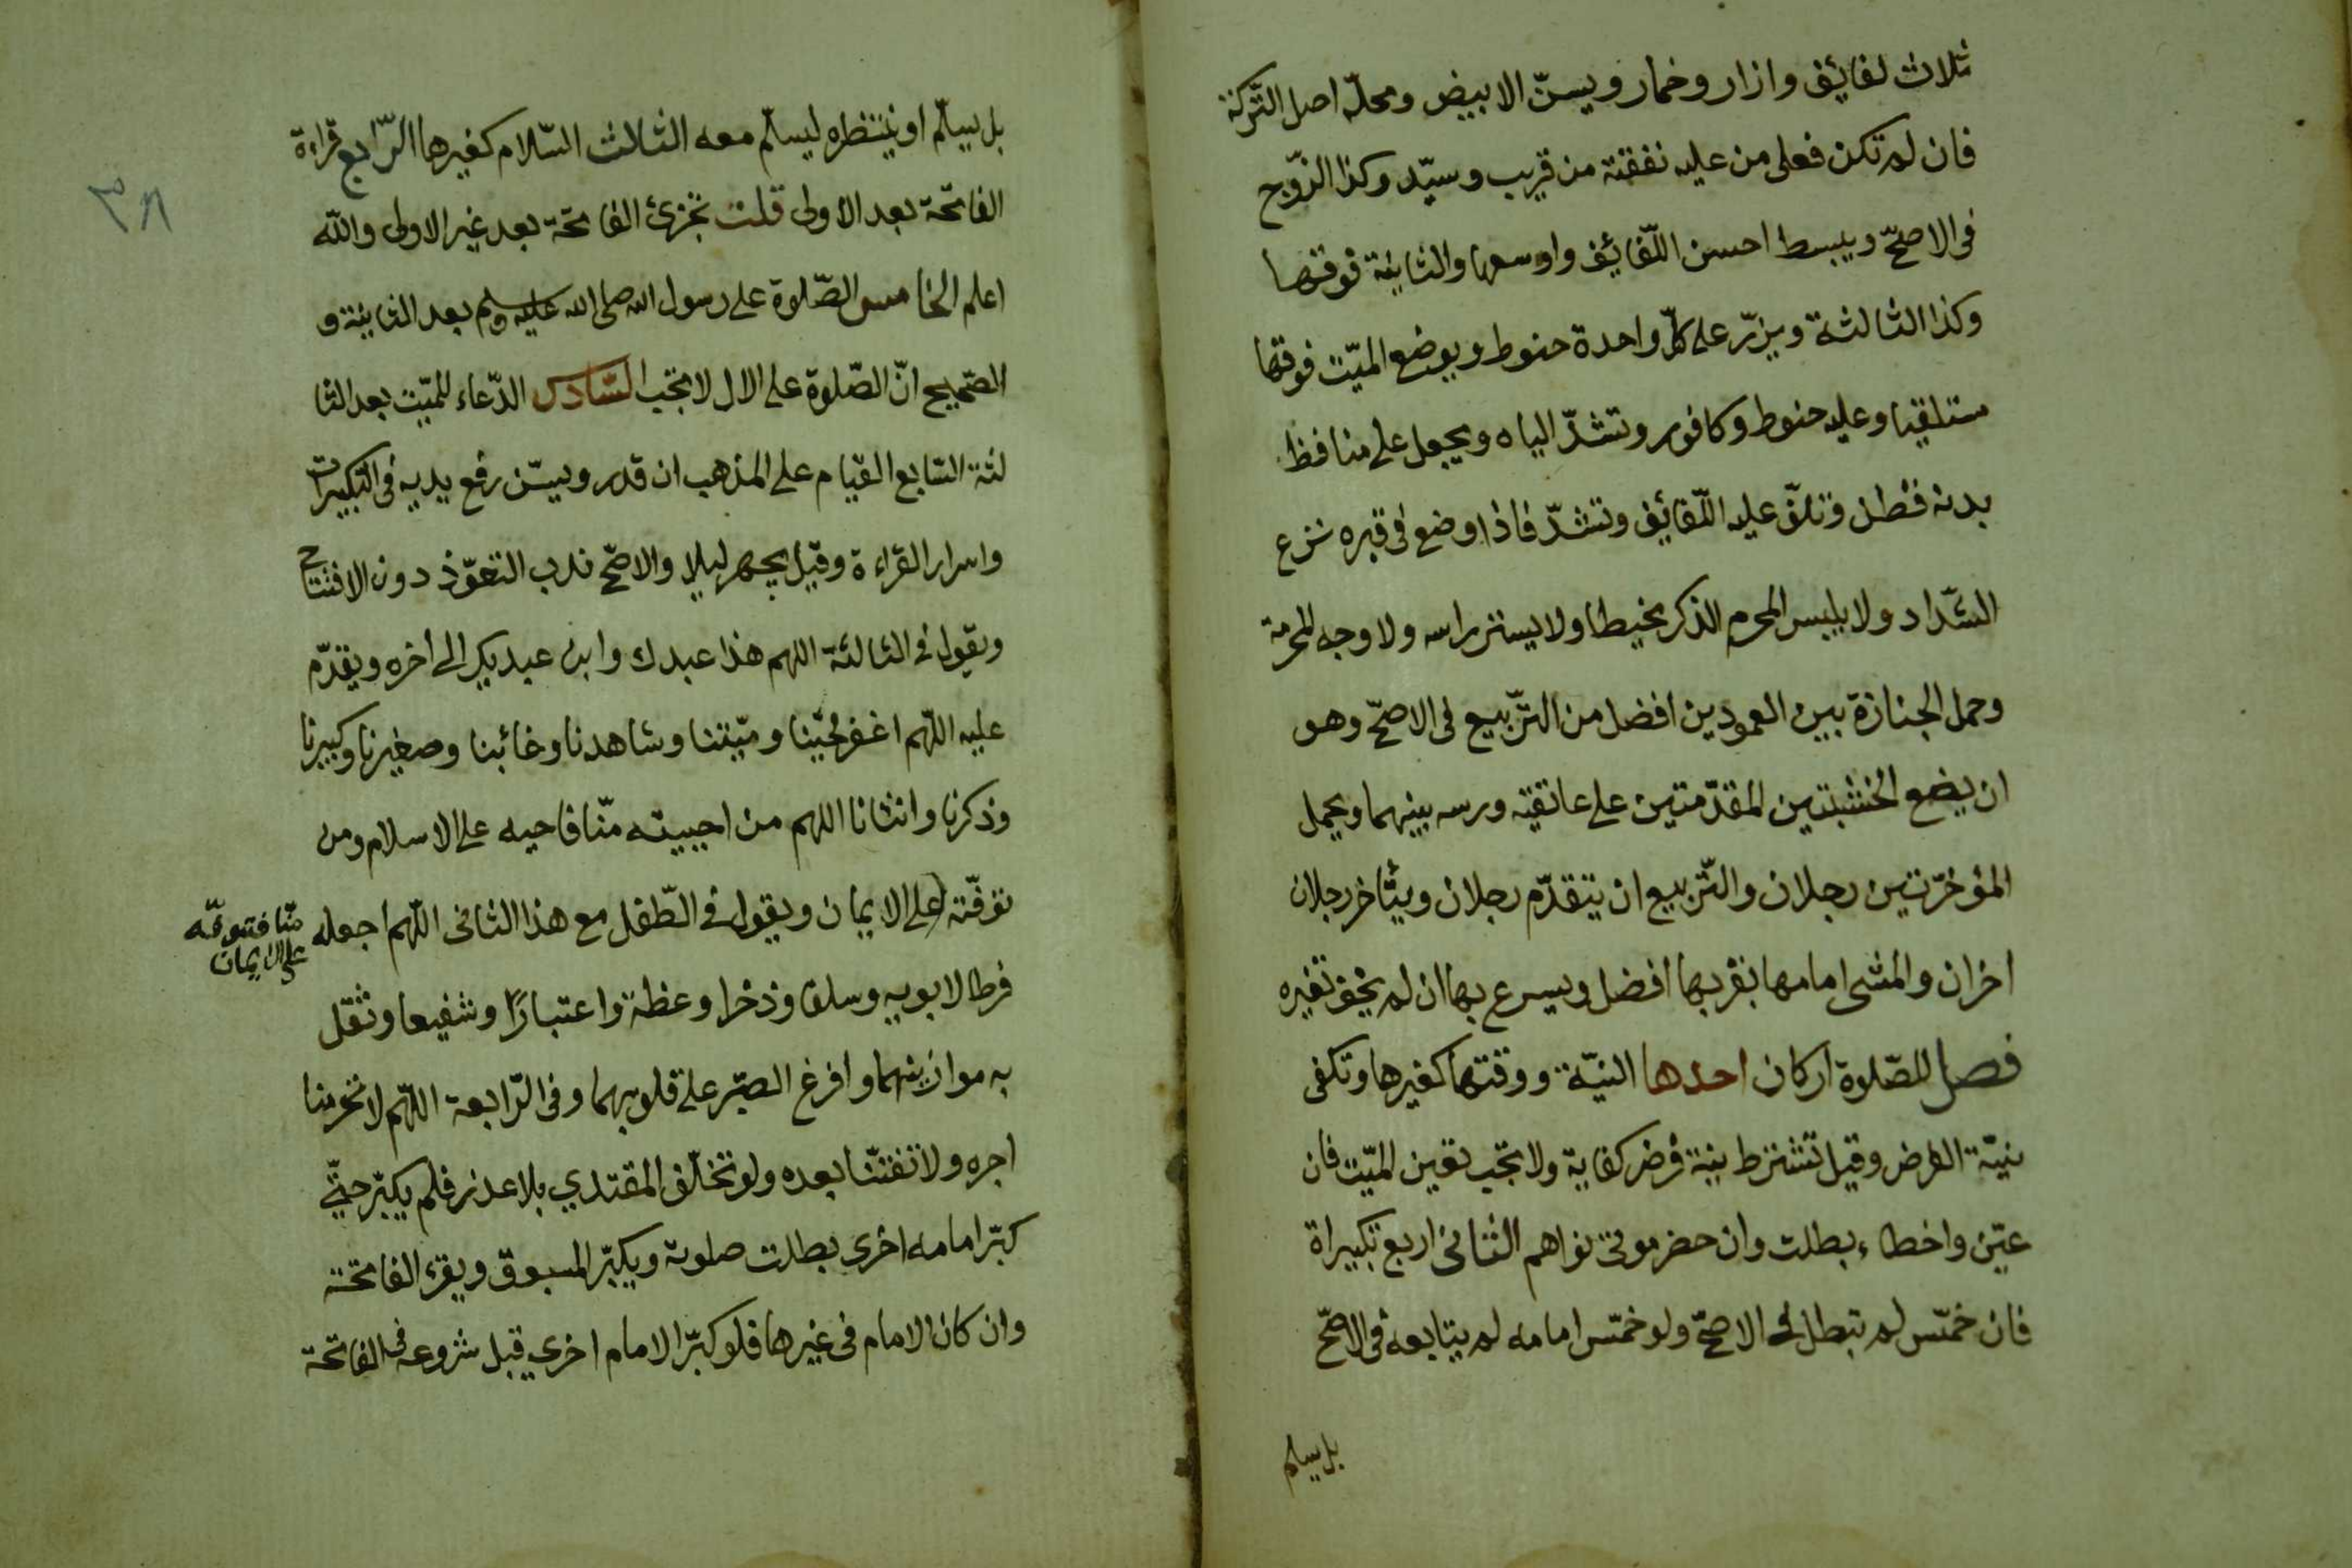 ثلاث لفائف وازار وخمار ويسنّ الابيض ومحلّه اصل التّركة
فان لم تكن فعلى من عليه نفقته من قريب وسيّد وكذا الزّوج
فى الاصحّ ويبسط احسن اللّفائف واوسعها والثانية فوقها
وكذا الثالثة ويزرّ على كلّ واحدة حنوط ويوضع الميّت فوقها
ستلقيا وعليه حنوط وكافور وتشدّ الياه ويجعل على منافظ
بدنه قطن وتلفّ عليه اللّفائف وتشدّ فاذا وضع فى قبره نزع
الشّداد ولا يلبس المحرم الذكر مخيطا ولا يستر راسه ولا وجه المحرمة
وحمل الجنازة بين العمودين افضل من التّربيع فى الاصحّ وهو
ان يضع الخشبتين المقدّمتين على عاتقيه ورسه بينهما ويحمل
المؤخرّتين رجلان والتّربيع ان يتقدّم رجلان ويتٔاخر رجلان
اخران والمشى امامها بقربها افضل ويسرع بها ان لم يخف تغيره
فصل للصّلوة اركان احدها النيّة ووقتها كغيرها وتكفى
نيّة الفرض وقيل تشترط نية فرض كفاية ولا تجب تعين الميّت فان
عيّن واخطاء بطلت وان حضر موتى نواهم الثانى اربع تكبيراة
فان خمّس لم تبطل فى الاصحّ ولو خمّس امامه لم يتابعه فى الاصحّ
بل يسلم
٣٨
بل يسلّم او ينتظره ليسلّم معه الثالث السّلام كغيرها الرّابع قراءة
الفاتحة بعد الاولى قلت تجزئ الفاتحة بعد غير الاولى والله
اعلم الخامس الصّلوة على رسول الله صلى الله عليه وسلم بعد الثانية و
الصّحيح انّ الصّلوة على الال لا تجب السّادس الدّعاء للميّت بعد الثا
لثة السّابع القيام على المذهب ان قدر ويسّن رفع يديه فى التكبيرات
واسرار القراءة وقيل يجهر ليلا والاصحّ ندب التعوّذ دون الافتتاح
ويقول فى الثالثة اللهم هذا عبدك وابن عبديك الى اخره ويقدّم
عليه اللّهم اغفر لحيّنا وميّتنا وشاهدنا وغائبنا وصغيرنا وكبيرنا
وذكرنا وانثانا اللهم من احييته منّا فاحيه على الاسلام ومن
توفّته على الايمان ويقول فى الطّفل مع هذا الثانى اللّهم اجعله
منّا فتوفّه
على الايمان
فرطا لابويه وسلفا وذخرا وعظة واعتبارًا وشفيعا وثقّل
به موازينهما وافرغ الصّبر على قلوبهما وفى الرّابعة اللّهم لا تحرمنا
اجره ولا تفتنّا بعده ولو تخلّف المقتدي بلا عذر فلم يكبّر حتّى
كبّر امامه اخرى بطلت صلوته ويكبّر المسبوق ويقرء الفاتحة
وان كان الامام فى غيرها فلو كبّر الامام اخرى قبل شروعه فى الفاتحة